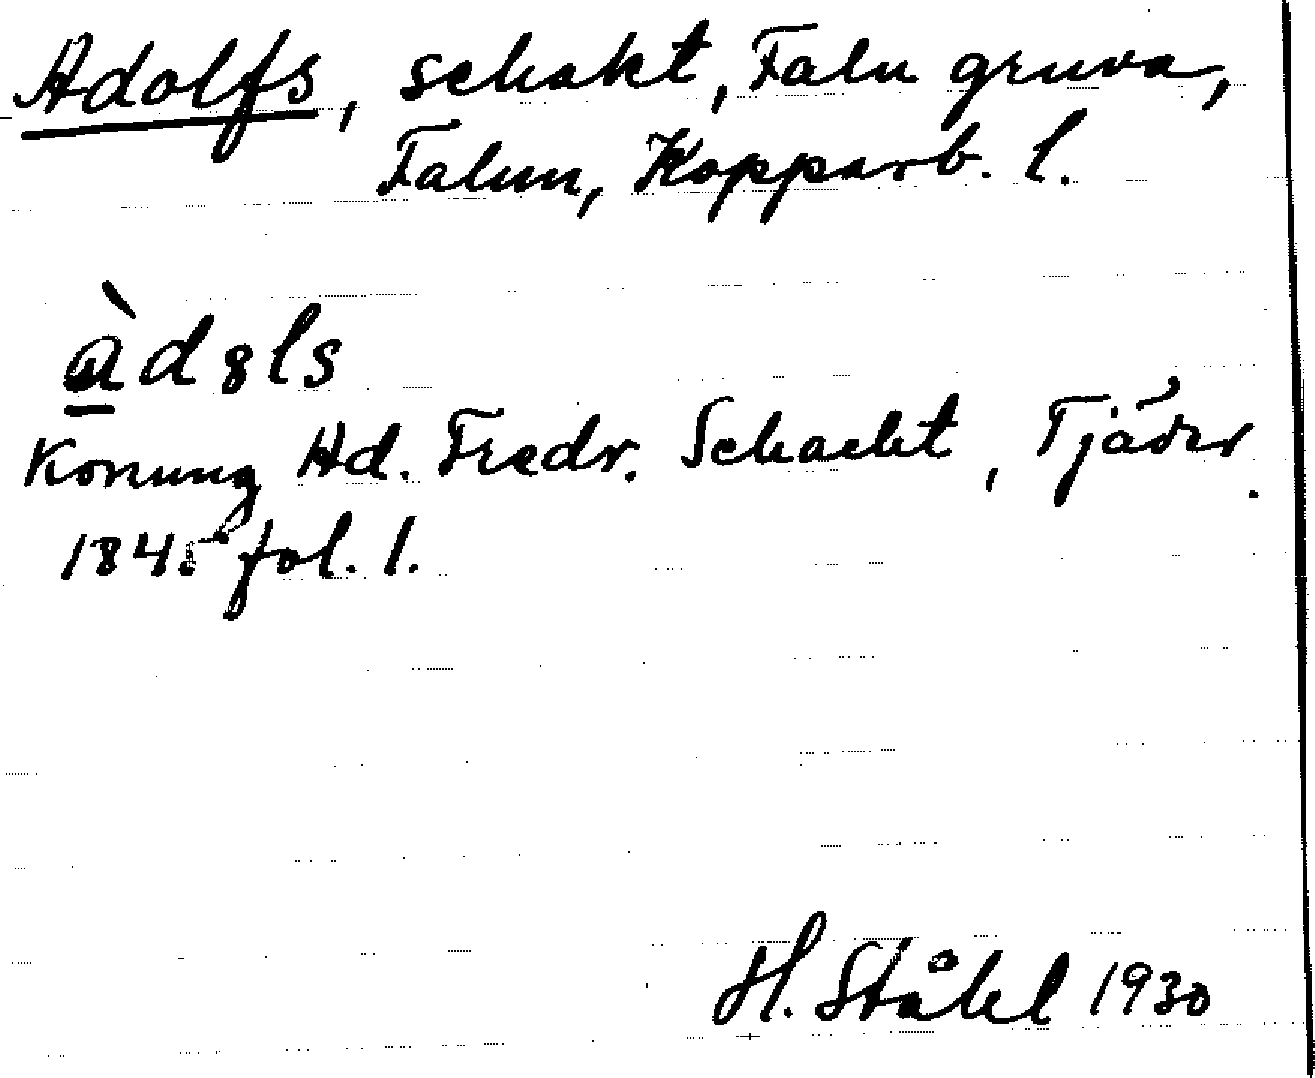 Adolfs, schakt, Falu gruva,
Falun, Kopparb. l.
àd8ls
Konung Ad. Fredr. Schacht, Tjäder
1845 fol. 1.
H. Ståhl 1930